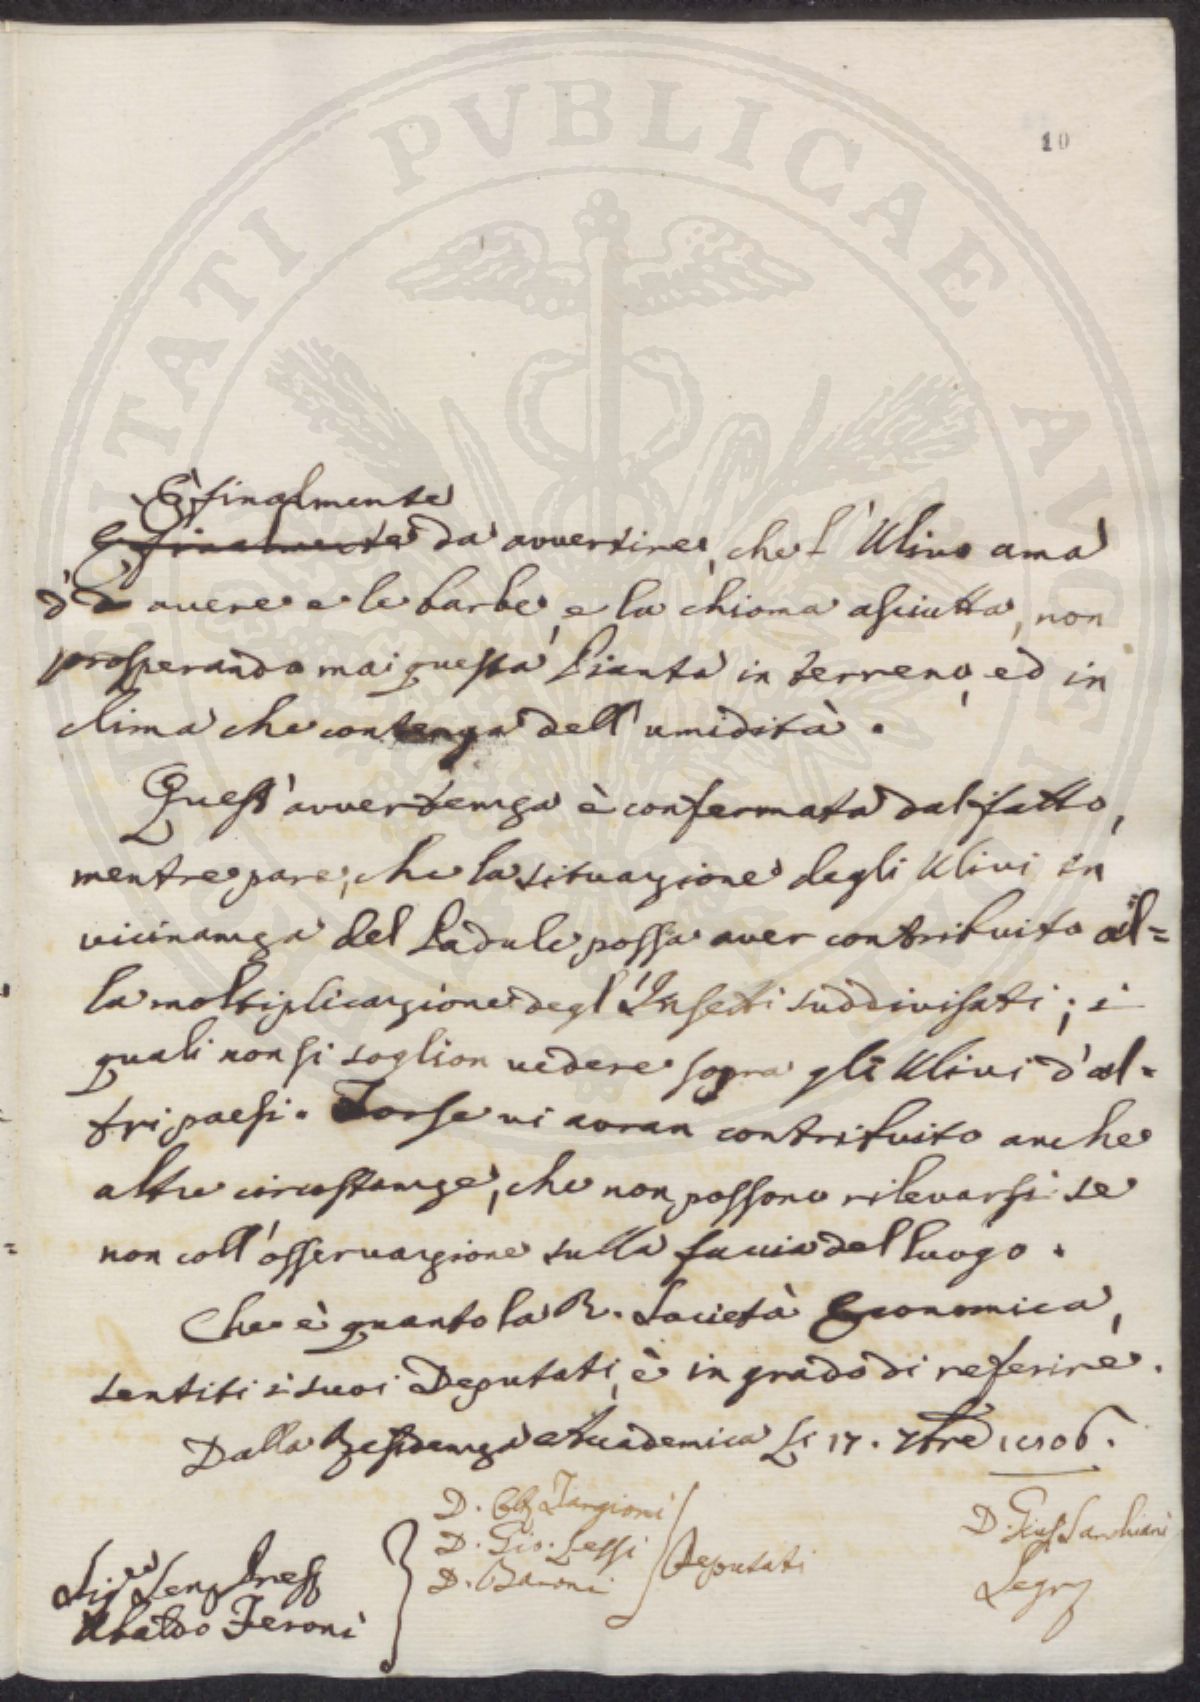 PROSPERITATI PUBLICAE AUGENDAE
10
È finalmente
E finalmente da avvertire, che l' Ulivo ama
d' avere e le barbe, e la chioma asciutta, non
prosperando mai questa Pianta in terreno, ed in
clima che contenga dell' umidità.
Quest' avvertenza è confermata dal fatto,
mentre pare, che la situazione degli Ulivi in
vicinanza del Padule possa aver contribuito al=
la moltiplicazione degl' Insetti suddivisati; i
quali non si soglion vedere sopra gli Ulivi d' al=
tri paesi. Forse vi avran contribuito anche
altre circostanze, che non possono rilevarsi se
non coll' osservazione sulla faccia del luogo.
Che è quanto la R. Società Economica,
sentiti i suoi Deputati, è in grado di referire.
Dalla Residenza Accademica Li 17. 7bre 1806.
D. Targioni
D. Gio. Lessi
D. Baroni
Deputati
D. Gius. Sarchiani
Segr.
Sig.re Sen. Press.
Ubaldo Feroni